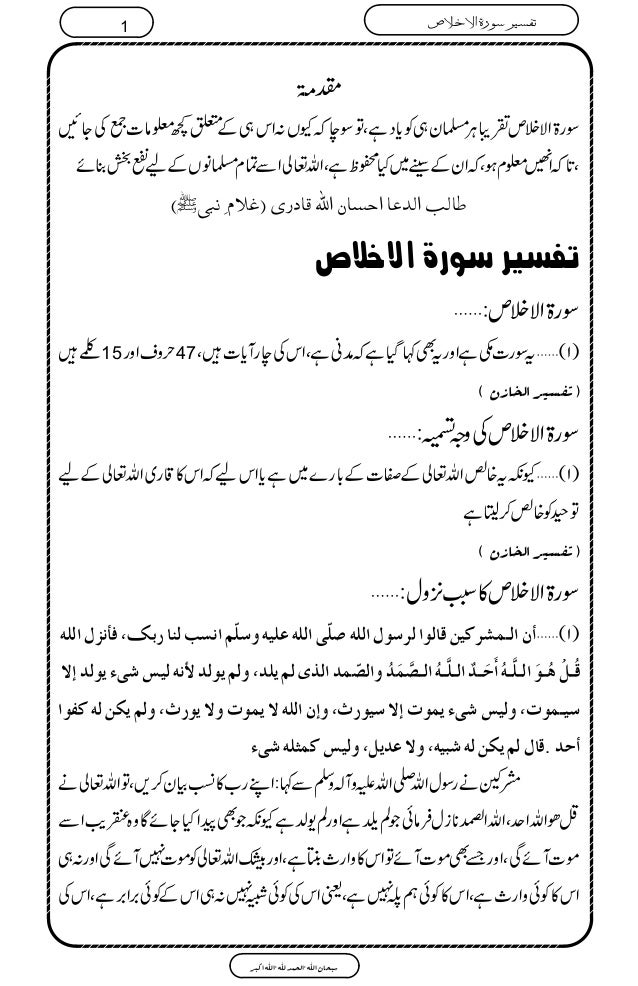 تفسیر سورۃ الاخلاص
1
مقدمۃ
سورۃ الاخلاص تقریبا ہر مسلمان ہی کو یاد ہے، تو سوچا کہ کیوں نہ اس ہی کے متعلق کچھ معلومات جمع کی جائیں
،تا کہ انھیں معلوم ہو، کہ ان کے سینے میں کیا محفوظ ہے، اللہ تعالی اسے تمام مسلمانوں کے لیے نفع بخش بنائے
طالب الدعا احسان اللہ قادری (غلامِ نبی ﷺ)
تفسیر سورۃ الاخلاص
سورۃ الاخلاص:......
(۱)......یہ سورت مکی ہے اور یہ بھی کہا گیا ہے کہ مدنی ہے، اس کی چار آیات ہیں، 47 حروف اور 15 کلمے ہیں
(تفسیر الخازن)
سورۃ الاخلاص کی وجہ تسمیہ:......
(۱)......کیونکہ یہ خالص اللہ تعالی کے صفات کے بارے میں ہے یا اس لیے کہ اس کا قاری اللہ تعالی کے لیے
توحید کو خالص کر لیتا ہے
(تفسیر الخازن)
سورۃ الاخلاص کا سبب نزول:......
(۱)......أن المشركين قالوا لرسول الله صلّى الله عليه وسلّم انسب لنا ربك، فأنزل الله
قُلْ هُوَ اللَّهُ أَحَدٌ اللَّهُ الصَّمَدُ والصّمد الذى لم يلد، ولم يولد لأنه ليس شىء يولد إلا
سيموت، وليس شىء يموت إلا سيورث، وإن الله لا يموت ولا يورث، ولم يكن له كفوا
أحد .قال لم يكن له شبيه، ولا عديل، وليس كمثله شىء
مشرکین نے رسول اللہ صلی اللہ علیہ و آلہ وسلم سے کہا: اپنے رب کا نسب بیان کریں، تو اللہ تعالی نے
قل ھو اللہ احد، اللہ الصمد نازل فرمائی جو لم یلد ہے اور لم یولد ہے کیونکہ جو بھی پیدا کیا جائے گا وہ عنقریب اسے
موت آئے گی، اور جسے بھی موت آئے تو اس کا وارث بنتا ہے، اور بیشک اللہ تعالی کو موت نہیں آئے گی اور نہ ہی
اس کا کوئی وارث ہے، اس کا کوئی ہم پلہ نہیں ہے، یعنی اس کی کوئی شبیہ نہیں نہ ہی اس کے کوئی برابر ہے، اس کی
سبحان اللہ الحمد للہ اللہ اکبر